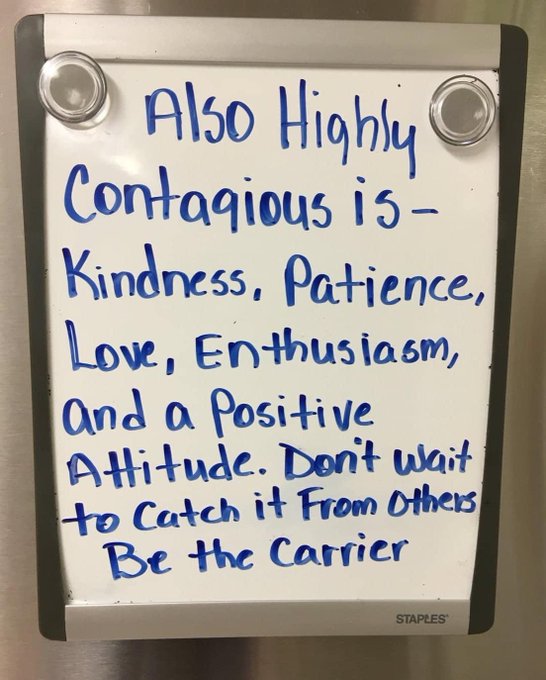 Also Highly
Contagious is -
Kindness, Patience,
Love, Enthusiasm,
and a Positive
Attitude. Don't wait
to Catch it From Others
Be the Carrier
STAPLES